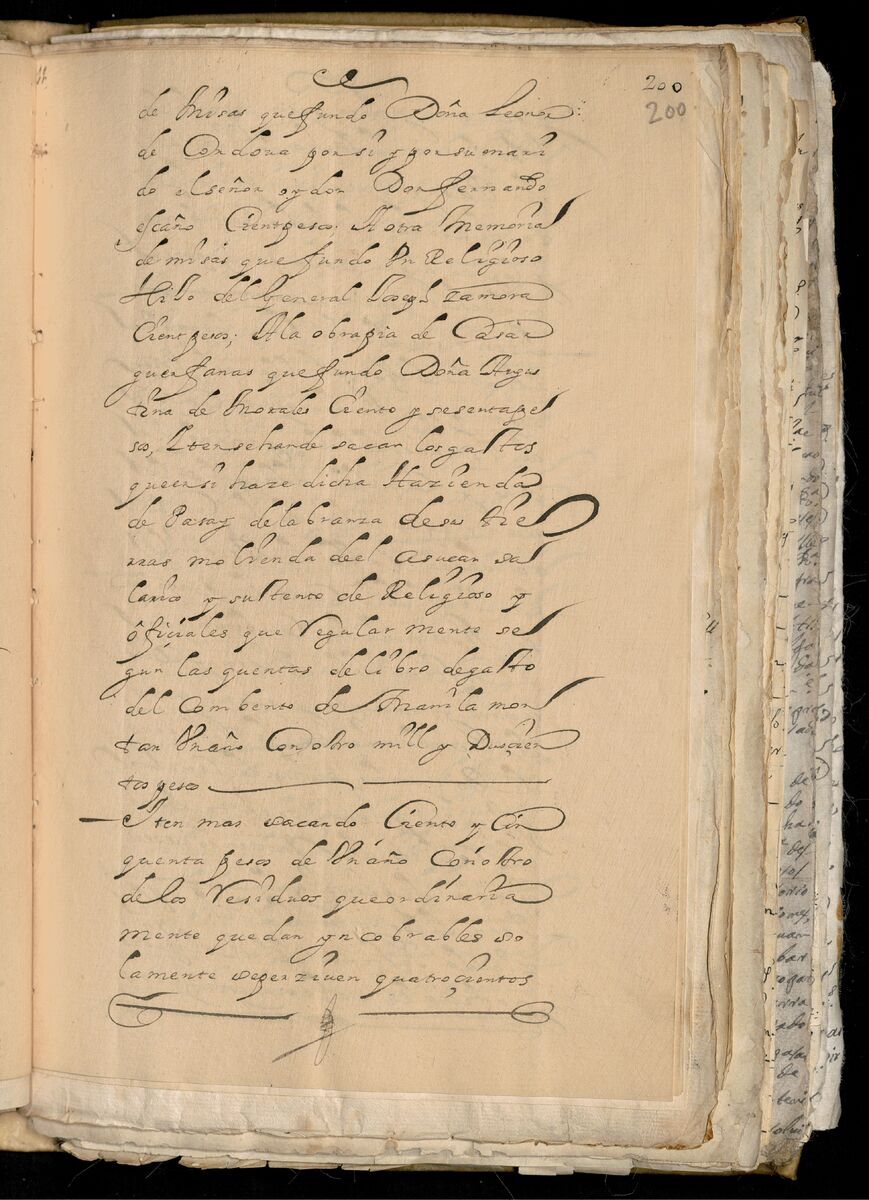 200
200
de Misas que fundo Doña Leonor
de Cordova por si y por su mari
do el señor oydor Don fernando
escaño Cient pesos; A otra Memoria
de misas que fundo Vn Religioso
Hijo del General Joseph Zamora
Cient pesos; A la obra pia de Casar
guerfanas que fundo Doña Augus
tina de Morales Ciento y sesenta pe
sos, Iten se han de sacar los gastos
que en si haze dicha Hazienda
de Pasay de labranza de sus tie
rras molienda de el asucar sa
larios y sustento de Religioso y
ôficiales que Regular mente se
gun las quentas de libro de gasto
del Combento de Manila mon
tan Vn año Con otro mill y Duscien
tos pesos
Iten mas sacando Ciento y Cin
quenta pesos de Vn año Con otro
de los Residuos que ordinaria
mente quedan yncobrables so
lamente se perziven quatroçientos